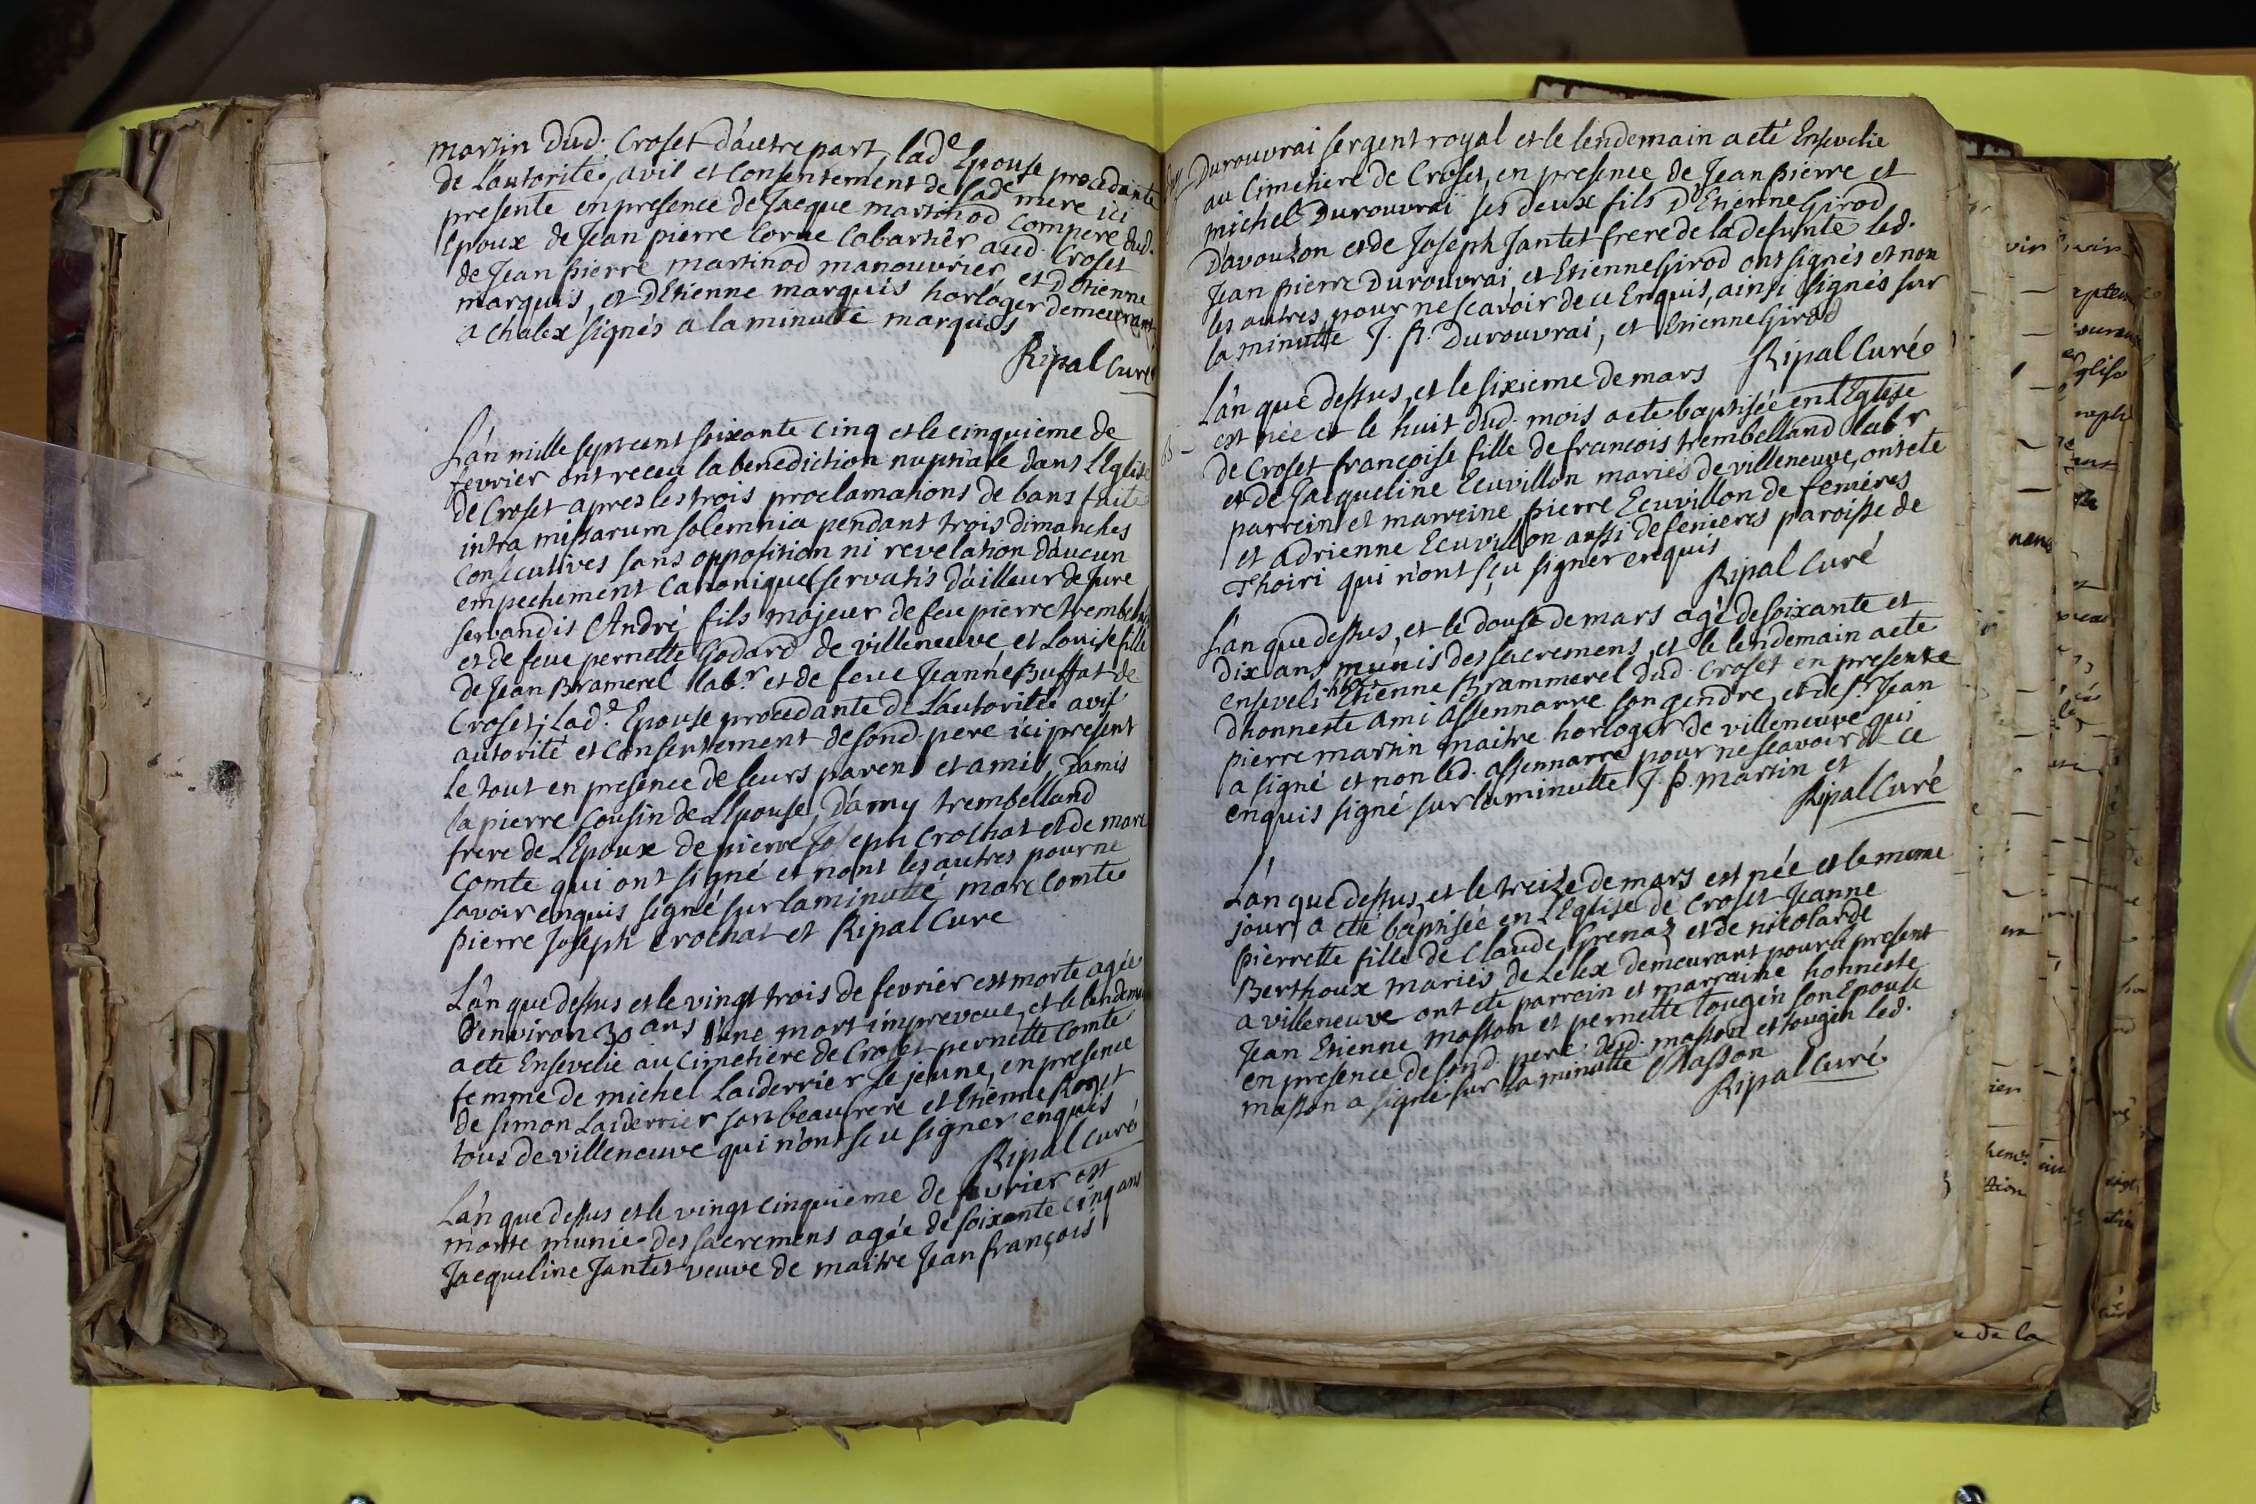 martin dud. Croset d'autre part, lad.e Epouse procedante
de L'autorité, avis et Consentement de sad.e mere ici
presente en presence de Jacque martinod compere dud.
Epoux de Jean pierre Corne Cabartier aud. Croset
de Jean pierre martinod manouvrier, et d'Etienne
marquis, et d'Etienne marquis horloger demeurant
a Chalex signés a la minutte marquis
Ripal Curé
L'an mille sept cent soixante cinq et le cinquieme de
fevrier ont receu la benediction nuptiale dans L'Eglise
de Croset apres les trois proclamations de bans faite
intra missarum solemnia pendant trois dimanches
Consecutives sans opposition ni revelation d'aucun
empechement Canonique servatis d'ailleur de Jure
servandis André fils majeur de feu pierre trembelland
et de feue pernette Godard de villeneuve et Louise fille
de Jean Bramerel lab.r et de feue Jeanne Buffat de
Croset; Lad.e Epouse procedante de L'autorité avis
autorité et consentement de sond. pere ici present
Le tout en presence de leurs parens et amis, Damis
la pierre Cousin de L'Epouse, D'amy trembelland
frere de L'Epoux de pierre Joseph Crochat et de marc
Comte qui ont signé et nont les autres pour ne
savoir enquis signé sur la minutte marc Comte
pierre Joseph Crochat et Ripal Cure
L'an que dessus et le vingt trois de fevrier est morte agée
d'environ 30 ans d'une mort imprevoue, et le lendemain
a ete Ensevelie au Cimetiere de Croset pernette Comte
femme de michel Laiderrier Le jeune, en presence
de simon Laiderrier son beaufrere et Etienne Roset
tous de villeneuve qui n'ont scu signer enquis
Ripal Curé
L'an que dessus et le vingt cinquieme de fevrier est
morte munie des sacremens agée de soixante cinq ans
Jacqueline Jantet veuve de maitre Jean françois
Durouvrai sergent royal et le lendemain a eté Ensevelie
au Cimetiere de Croset, en presence de Jean pierre et
michel Durouvrai ses deux fils d'Etienne Girod
D'avouson et de Joseph Jantet frere de la defunte led.
Jean pierre Durouvrai et Etienne Girod ont signés et non
les autres pour ne scavoir de ce Enquis, ainsi signés sur
la minutte J. P. Durouvrai, et Etienne Girod
Ripal Curé
L'an que dessus, et le sixieme de mars
est née et le huit dud. mois a ete baptisée en L'Eglise
de Croset françoise fille de francois trembelland lab.r
et de Jacqueline Ecuvillon mariés de villeneuve, ont ete
parrein et marreine pierre Ecuvillon de fenieres
et adrienne Ecuvillon aussi de fenieres paroisse de
Thoiri qui n'ont sçu signer enquis
Ripal Curé
L'an que dessus, et le douse de mars agé de soixante et
dix ans munis des sacremens, et le lendemain a ete
enseveli Etienne Brammerel dud. Croset en presence
d'honneste ami assennarre son gendre, et de s.r Jean
pierre martin maitre horloger de villeneuve qui
a signé et non led. assennarre pour ne scavoir de ce
enquis signé sur la minutte J. P. martin et
Ripal Curé
L'an que dessus, et le treize de mars est née et le meme
jour a eté baptisée en L'Eglise de Croset Jeanne
pierrette fille de Claude Grenaz et de nicolarde
Berthoux mariés de Lelex demeurant pour le present
a villeneuve ont ete parrain et marraine honneste
Jean Etienne masson et pernette tougin son Epouse
en presence de sond. pere dud. masson et tougin led.
masson a signé sur la minutte Masson
Ripal Curé